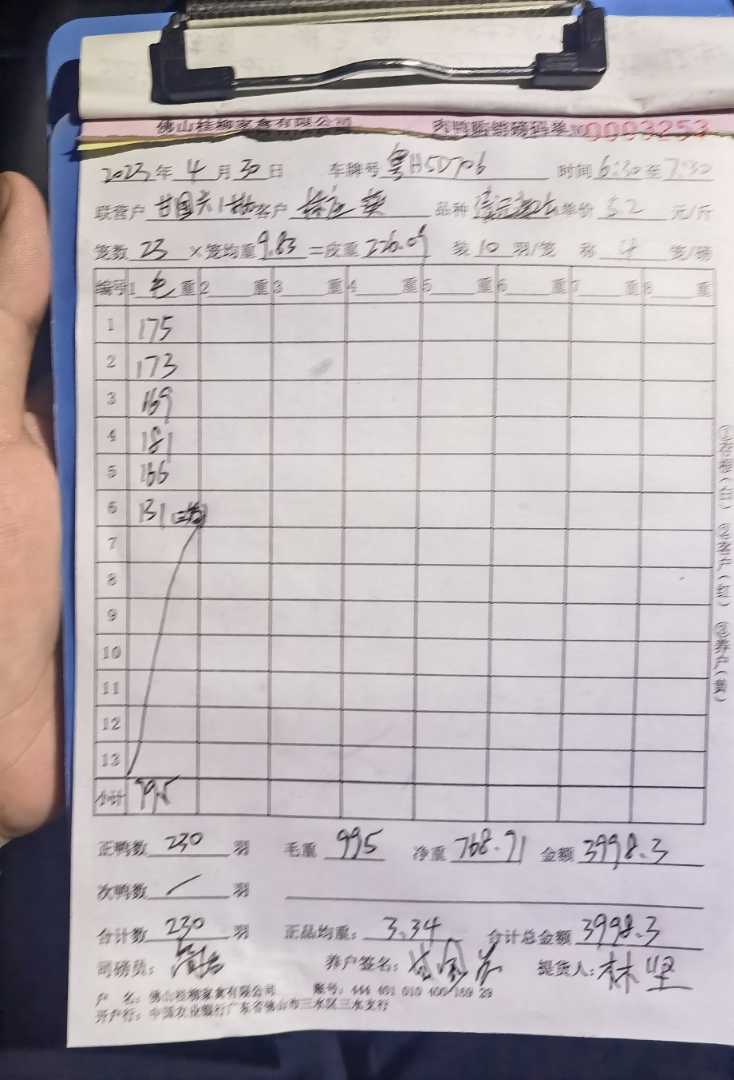 佛山桂柳家禽有限公司 肉鸭赊销磅码单 0003253
2023年4月30日 车牌号 粤H5D706 时间 6:30至7:30
联营户 客户 品种 单价 5.2 元/斤
笼数 23 ×笼均重 9.83 =皮重 226.09 装 10 羽/笼 称 4 笼/磅
编号 1 毛 重 2 重 3 重 4 重 5 重 6 重 7 重 8 重
1 175
2 173
3 169
4 181
5 166
6 131
7
8
9
10
11
12
13
小计 995
正鸭数 230 羽 毛重 995 净重 768.91 金额 3998.3
次鸭数 / 羽
合计数 230 羽 正品均重: 3.34 合计总金额 3998.3
司磅员: 养户签名: 提货人: 林坚
户 名: 佛山桂柳家禽有限公司 账号: 444 401 010 400 169 29
开户行: 中国农业银行广东省佛山市三水区三水支行